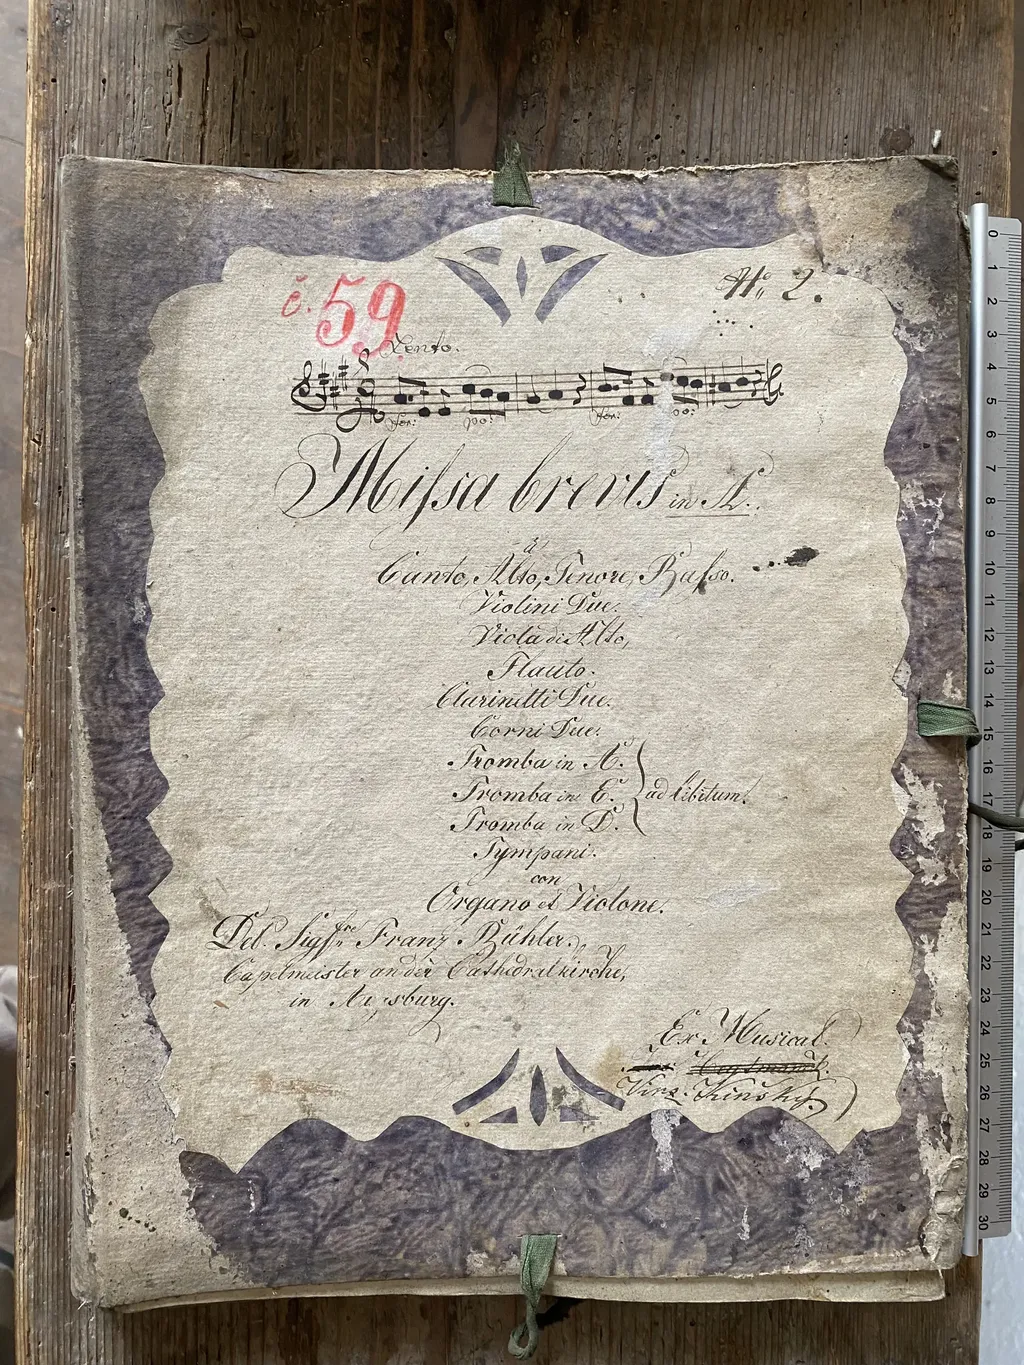 č. 59.
№ 2.
Lento.
for: po: for: po:
Missa brevis in A.
à
Canto, Alto, Tenore, Basso.
Violini Due.
Viola di Alto,
Flauto.
Clarinetti Due.
Corni Due.
Tromba in A.
Tromba in E. ad libitum.
Tromba in D.
Tympani.
con
Organo et Violone.
Del Sig Franz Bühler.
Capelmeister an der Cathedralkirche,
in Augsburg.
Ex Musical.
Vinz: Kinsky.
0 1 2 3 4 5 6 7 8 9 10 11 12 13 14 15 16 17 18 19 20 21 22 23 24 25 26 27 28 29 30